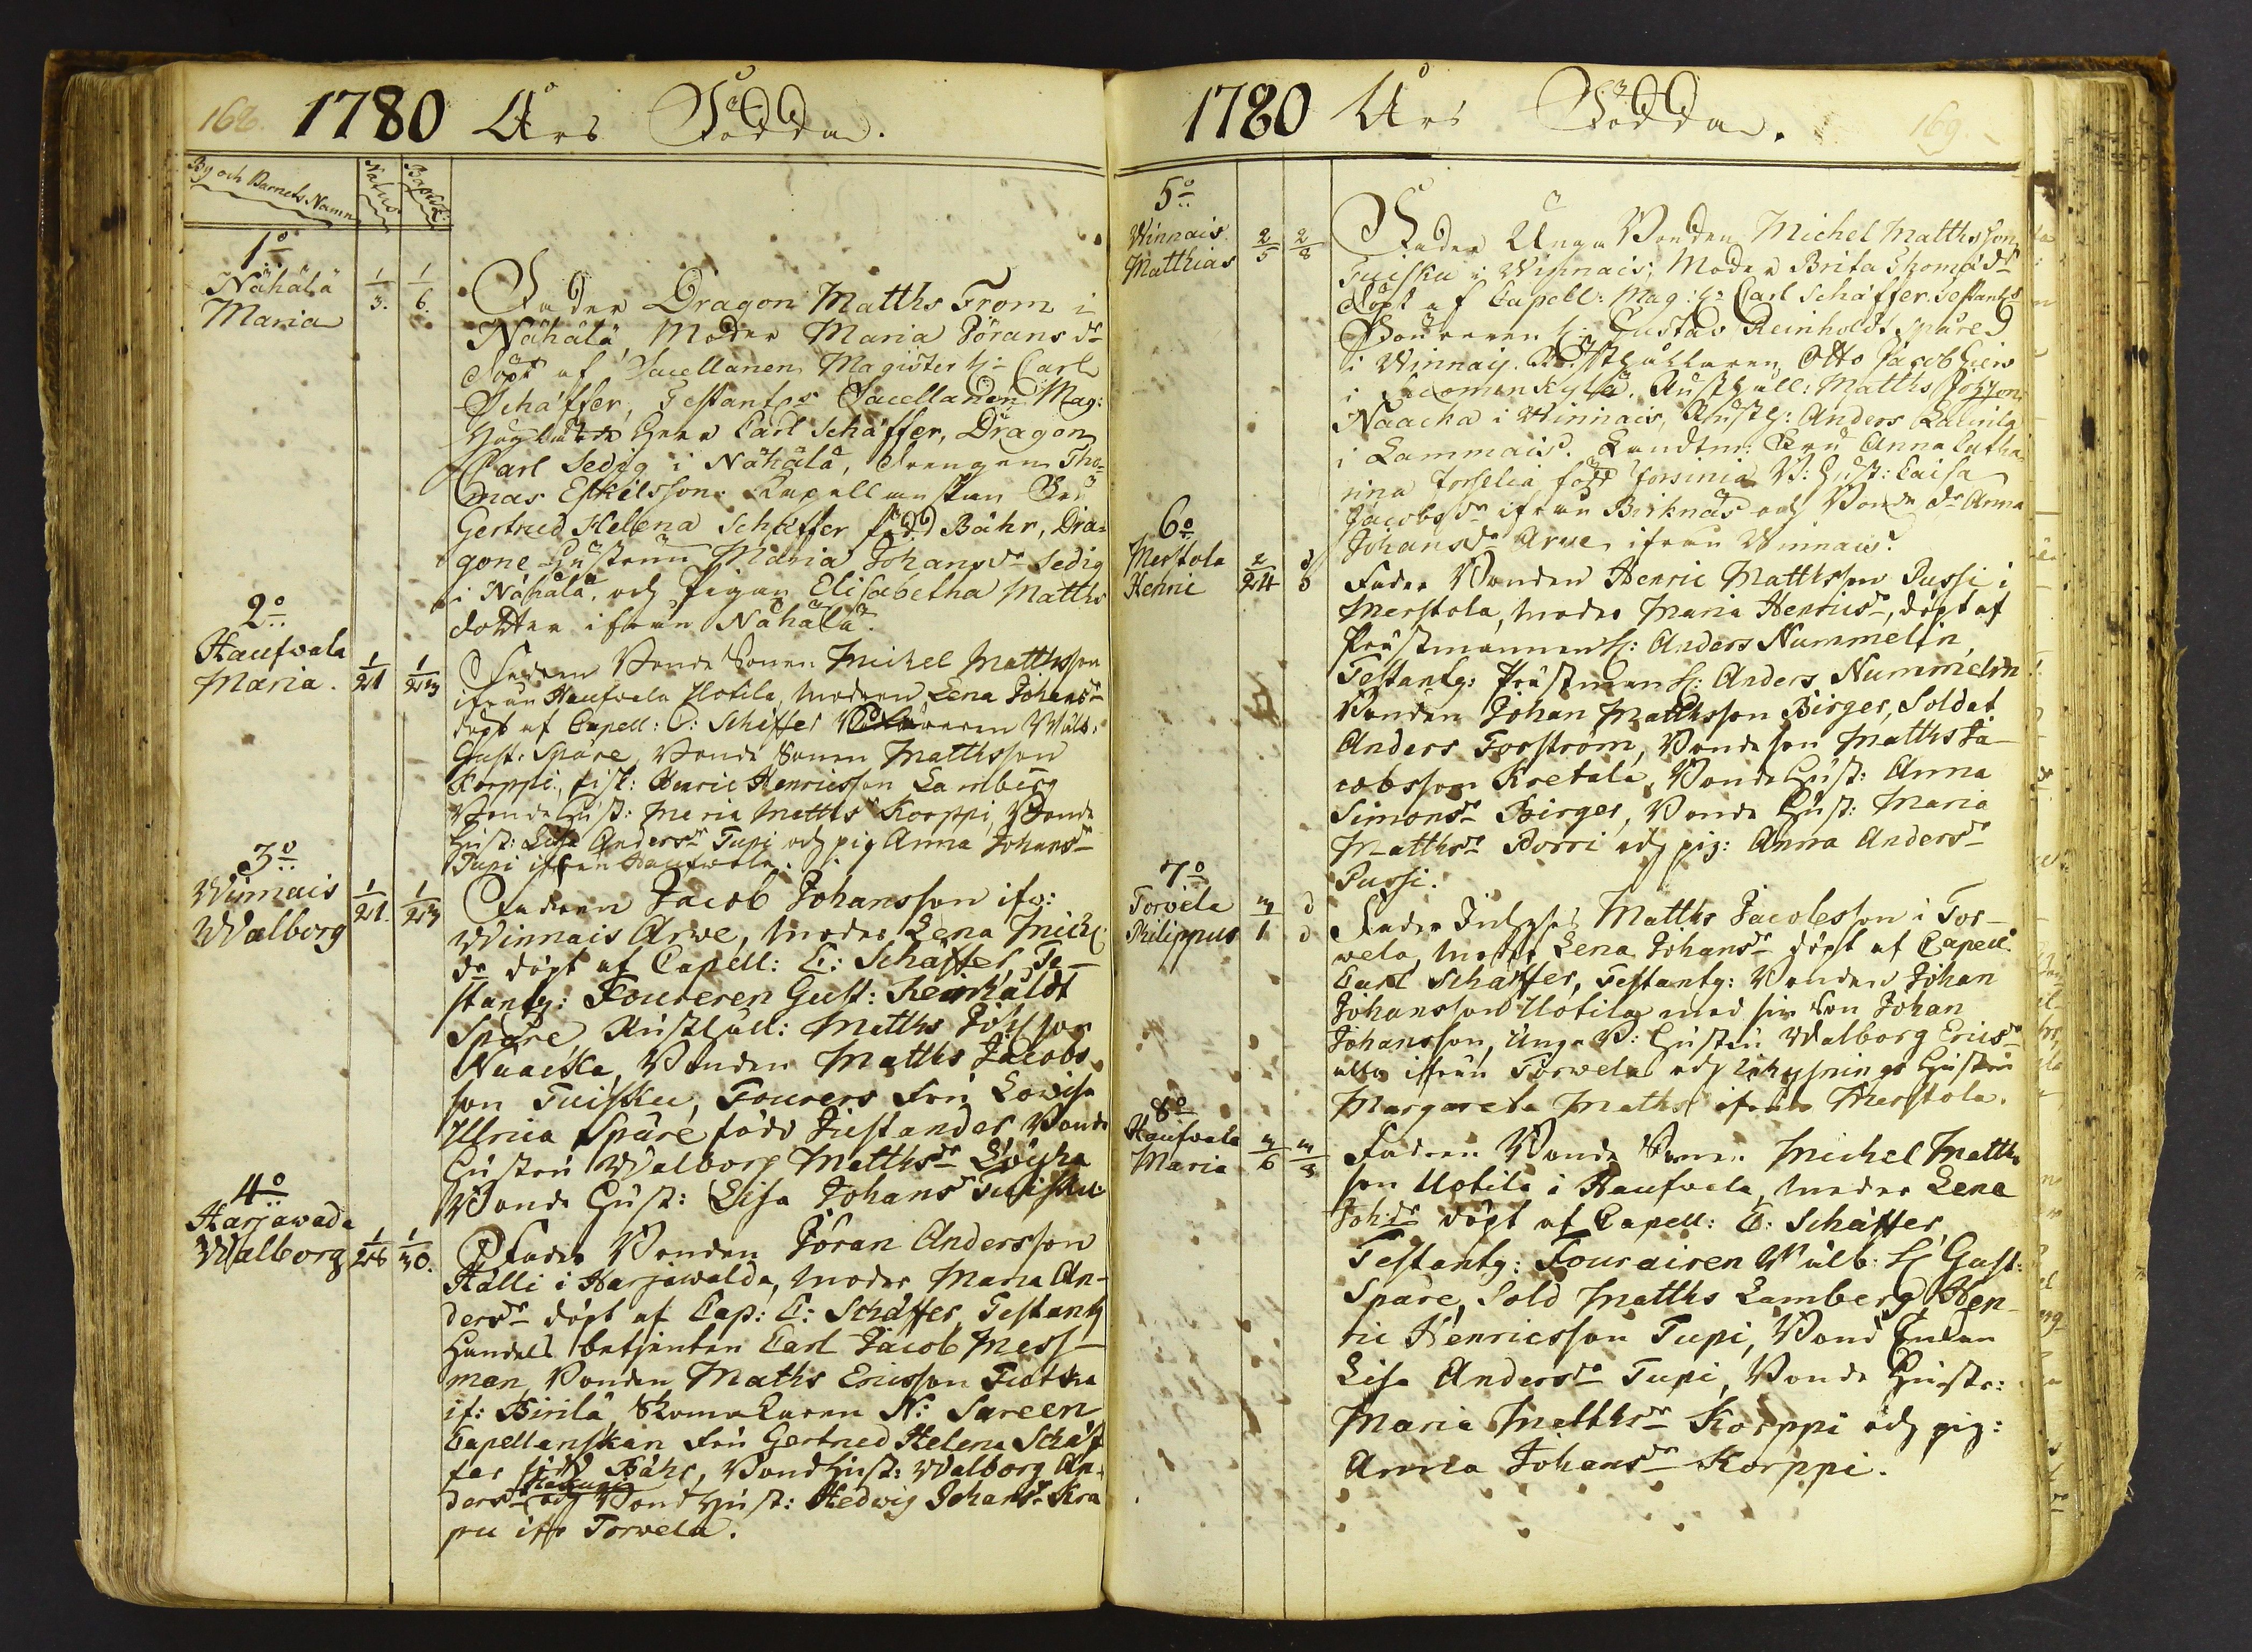 168. 1780 Års Födda.
By och Barnets Namn Natus Bapt:
1º
Nähälä 1/3. 1/6.
Maria
Fader Dragon Matths From i
Nähälä, Moder Maria Jörans dr
döpt af Sacellanen Magister H: Carl
Schäffer, Testantes Sacellanen Mag:
Herr Carl Schäffer, Dragon
Carl Sedig i Nähälä, drengen Tho-
mas Eskilsson. Capellanskan Fru
Gertrud Helena Schäffer född Bähr, Dra-
gone Hustrun Maria Johansdr Sedig
i Nähälä, och Pigan Elisabetha Matths
dotter ifrån Nähälä.
2º
Haufwala 1/21 1/23
Maria.
Fadren Bonde Sonen Michel Mattsson
ifrån Haufwala Uotila, modren Lena Johansdr
döpt af Capell: C: Schäffer Wälb:
Gust: Spåre, Bonde Sonen Matthsson
Korppi, Henric Henricsson Lamberg
Bonde Hust: Maria Matths dr Korppi, Bonde
Hust: Lisa Andersdr Tupi och pig Anna Johansdr
Tupi ifrån Haufwala.
3º
Winnais 1/21. 1/23
Walborg
Fadren Jacob Johansson ifr:
Winnais Arwe, Moder Lena Mich:
dr döpt af Capell: C: Schäffer, Te-
stantes: Foureren Gust: Reinholdt
Spåre, Rusthåll: Matths Johsson
Naacka, Bonden Matths Jacobs
son Tuisku, Fourers Fru Lovisa
Ulrica Spåre född Bonde
Hustru Walborg Matthsdr
Bonde Hust: Lisa Johansdr Tuisku
4º
Harjawada
Walborg 1/28 1/30.
Fader Bonden Jöran Andersson
Hälli i Harjawalda, moder Maria An-
dersdr döpt af Cap: C: Schäffer, Testantes
Handels betjenten Carl Jacob Mess-
man, Bonden Matths Ericsson
if: Pirilä, Skomakaren N: Sareen
Capellanskan Fru Gertrud Helena Schäf
fer född Bähr, Bond Hust: Walborg An-
dersdr och Bond Hust: Hedwig Johansdr Kra
pu ifr Torwela.
1780 Års Födda. 169
5º
Winnais 2/5 2/8
Matthias
Fader Unga Bonden Michel Matthsson
Tuisku i Winnais, Moder Brita Thomædr
döpt af Capell: Mag: H: Carl Schäffer. Testantes
Foureren H: Gustav Reinholdt Spåre
i Winnais. Rusthållaren Otto Jacob
i Rusthåll: Matths Johsson
Naacka i Winnais, Rusth: Anders
i Lammais. Landtm: Fru Anna Catha
rina Forselia född Forsinia B: Hust: Caisa
Jacobsdr ifrån Birknäs och Bonde dr Anna
Johansdr Arwe ifrån Winnais.
6º
Merstola 2/24
Henric
Fader Bonden Henric Matthsson Pussi i
Merstola, moder Maria Henricsdr, döpt af
Prästmannen H: Anders Nummelin,
Testantes: Prästman H: Anders Nummelin
Bonden Johan Matthsson Birger, Soldat
Anders Forström, Bonde son Matths Ja-
cobsson Kretala, Bonde Hust: Anna
Simonsdr Birger, Bonde Hust: Maria
Matthsdr Porri och pig: Anna Andersdr
Pussi.
7º
Torwela 3/1
Philippus
Fader Inhyses Matths Jacobsson i Tor-
wela, moder Lena Johansdr döpt af Capell
Carl Schäffer, Testantes: Bonden Johan
Johansson Uotila med sin Son Johan
Johansson, Unga B: Hustru Walborg Ericsdr
alla ifrån Torwela och Inhysnings Hustru
Margareta Mathsdr ifrån Merstola.
8º
Haufwala 3/6 3/8
Maria
Fadren Bonde Sonen Michel Matths
son Uotila i Haufwala, moder Lena
Joh:dr döpt af Capell: C: Schäffer,
Testantes: Fourairen Wälb: H Gust:
Spåre, Sold Matths Lamberg, Hen-
ric Henricsson Tupi, Bond Enkan
Lisa Andersdr Tupi, Bonde Hustr:
Maria Matthsdr Korppi och pig:
Anna Johansdr Korppi.